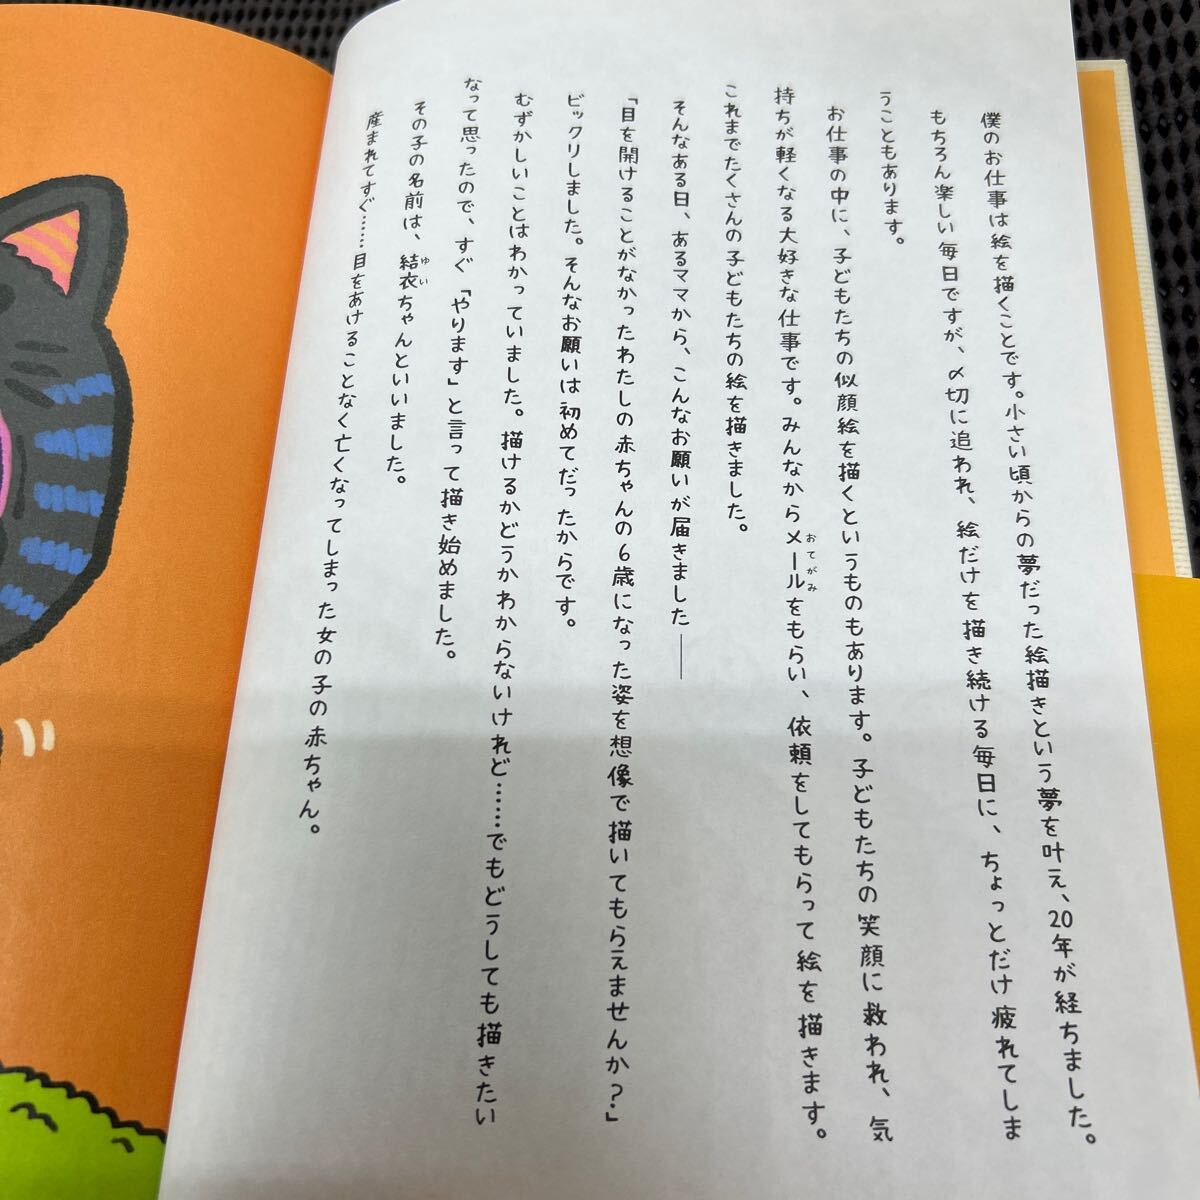 僕のお仕事は絵を描くことです。小さい頃からの夢だった絵描きという夢を叶え、20年が経ちました。
もちろん楽しい毎日ですが、〆切に追われ、絵だけを描き続ける毎日に、ちょっとだけ疲れてしま
うこともあります。
お仕事の中に、子どもたちの似顔絵を描くというものもあります。子どもたちの笑顔に救われ、気
持ちが軽くなる大好きな仕事です。みんなからメールをもらい、依頼をしてもらって絵を描きます。
おてがみ
これまでたくさんの子どもたちの絵を描きました。
そんなある日、あるママから、こんなお願いが届きました――
「目を開けることがなかったわたしの赤ちゃんの6歳になった姿を想像で描いてもらえませんか?」
ビックリしました。そんなお願いは初めてだったからです。
むずかしいことはわかっていました。描けるかどうかわからないけれど……でもどうしても描きたい
なって思ったので、すぐ「やります」と言って描き始めました。
その子の名前は、結衣ちゃんといいました。
ゆい
産まれてすぐ……目をあけることなく亡くなってしまった女の子の赤ちゃん。